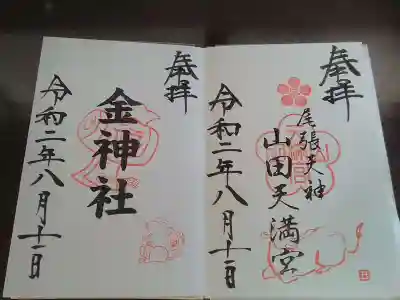 奉拝
尾張天神
山田天満宮
令和二年八月十二日
奉拝
金神社
令和二年八月十二日